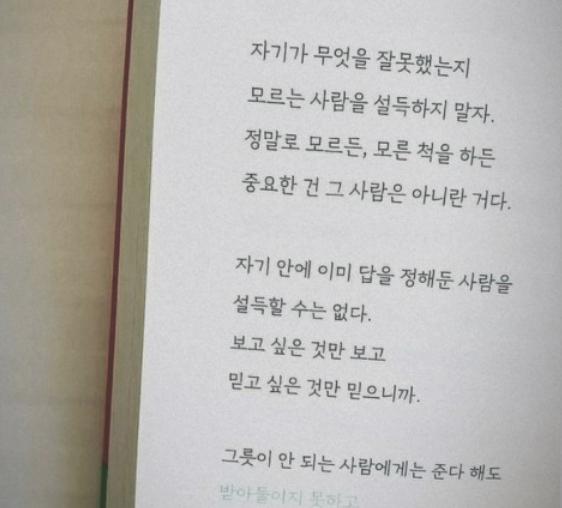 자기가 무엇을 잘못했는지
모르는 사람을 설득하지 말자.
정말로 모르든, 모른 척을 하든
중요한 건 그 사람은 아니란 거다.
자기 안에 이미 답을 정해둔 사람을
설득할 수는 없다.
보고 싶은 것만 보고
믿고 싶은 것만 믿으니까.
그릇이 안 되는 사람에게는 준다 해도
받아들이지 못하고